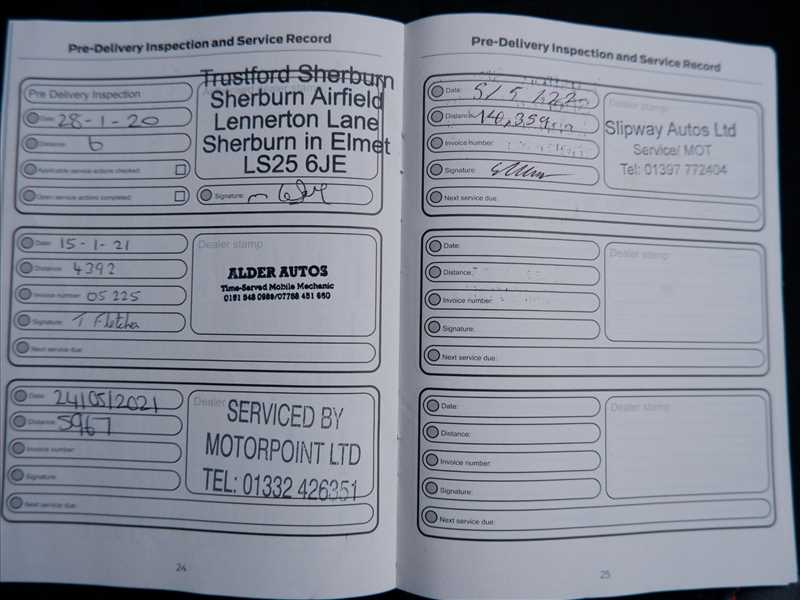 Pre-Delivery Inspection and Service Record
Pre Delivery Inspection
Date: 28-1-20
Distance: 6
Applicable service actions checked:
Open service actions completed:
Trustford Sherburn
Sherburn Airfield
Lennerton Lane
Sherburn in Elmet
LS25 6JE
Signature:
Date: 15-1-21
Distance: 4392
Invoice number: 05225
Signature: T Fletcher
Next service due:
Dealer stamp
ALDER AUTOS
Time-Served Mobile Mechanic
Date: 24/05/2021
Distance: 5967
Invoice number:
Signature:
Next service due:
Dealer
SERVICED BY
MOTORPOINT LTD
TEL: 01332 426351
24
Pre-Delivery Inspection and Service Record
Date: 5/5/22
Distance: 14,359
Invoice number:
Signature:
Next service due:
Dealer stamp
Slipway Autos Ltd
Service/ MOT
Tel: 01397 772404
Date:
Distance:
Invoice number:
Signature:
Next service due:
Dealer stamp
Date:
Distance:
Invoice number:
Signature:
Next service due:
Dealer stamp
25